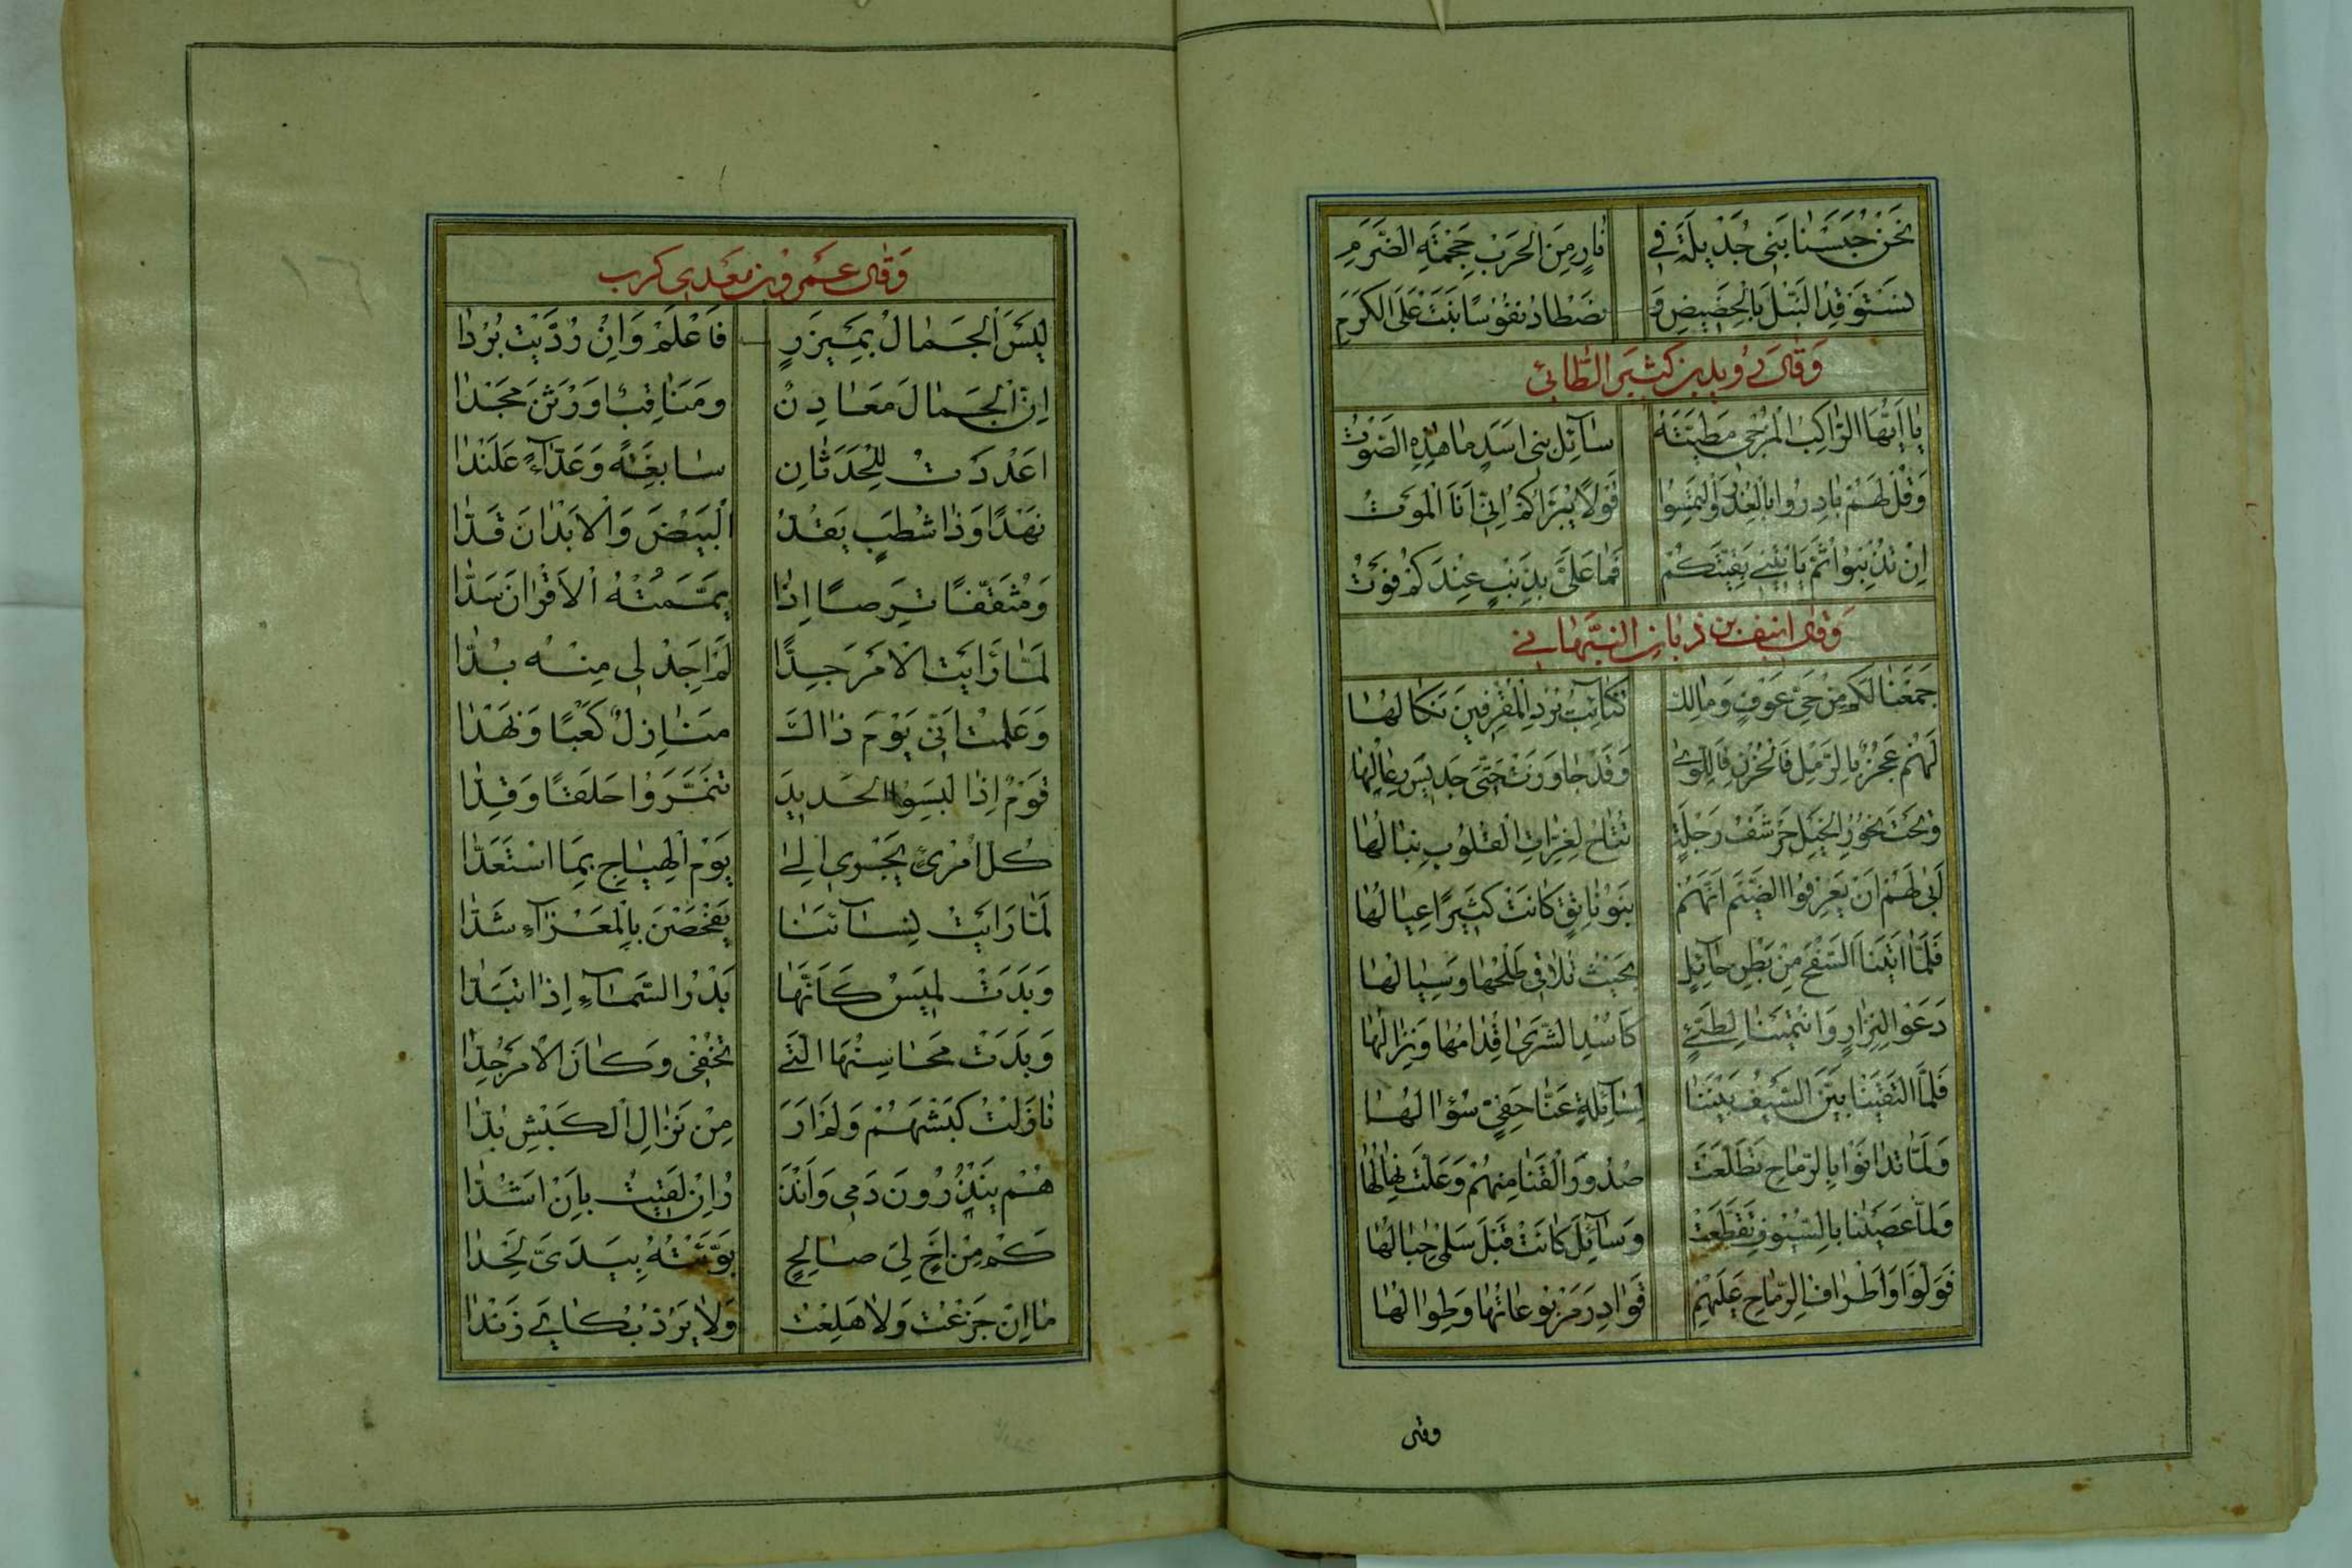 نَحْنُ حَبَسْنَا بَنِی جُدَیْلَةَ فِی نَارٍ مِنَ الْحَرْبِ جَحْمَةِ الضَّرَمِ
نَسْتَوْقِدُ النَّبْلَ بِالْحَضِیضِ وَ نَصْطَادُ نُفُوسًا بُنَتْ عَلَى الْكَرَمِ
وَقَالَ رُوَیْدُ بن كَثِیرِ الطَّائِیّ
یَا اَیُّهَا الرَّاكِبُ الْمُزْجِی مَطِیَّتَهُ سَآئِلْ بَنِی اَسَدٍ مَا هٰذِهِ الصَّوْتُ
وَقُلْ لَهُمْ بَادِرُوا بِالْعُذْرِ وَالْتَمِسُوا قَوْلًا یُبَرِّاُكُمْ اِنِّی اَنَا الْمَوْتُ
اِنْ تُذْنِبُوا ثُمَّ یَاْتِینِی بَقِیَّتُكُمْ فَمَا عَلَیَّ بِذَنْبٍ عِنْدَكُمْ فَوْتُ
وَقَالَ انیف بن زبان النَّبْهَانِی
جَمَعْنَا لَكُمْ مِنْ حَیِّ عَوْفٍ وَمَالِكٍ كَتَائِبَ یُرْدِی الْمُقْرِفِینَ نَكَالُهَا
لَهُمْ عَجُزٌ بِالرَّمْلِ فَالْحُزْنِ فَاللِّوٰى وَقَدْ جَاوَزَتْ حَتَّى جَدِیسَ رِعَالُهَا
وَتَحْتَ نُحُورِ الْخَیْلِ حَرْشَفُ رَجْلَةٍ تُتَاحُ لِغِرَّاتِ الْقُلُوبِ نِبَالُهَا
اَبٰى لَهُمْ اَنْ یَعْرِفُوا الضَّیْمَ اَنَّهُمْ بَنُو نَاتِقٍ كَانَتْ كَثِیرًا عِیَالُهَا
فَلَمَّا اَتَیْنَا السَّفْحَ مِنْ بَطْنِ حَآئِلٍ بِحَیْثُ تَلَاقٰى طَلْحُهَا وَسِیَالُهَا
دَعَوْا لِنِزَارٍ وَانْتَمَیْنَا لِطَیِّئٍ كَاُسْدِ الشَّرٰى اِقْدَامُهَا وَنِزَالُهَا
فَلَمَّا الْتَقَیْنَا بَیَّنَ السَّیْفُ بَیْنَنَا لِسَآئِلَةٍ عَنَّا حَفِیٍّ سُؤَالُهَا
وَلَمَّا تَدَانَوْا بِالرِّمَاحِ تَضَلَّعَتْ صُدُورُ الْقَنَا مِنْهُمْ وَعَلَّتْ نِهَالُهَا
وَلَمَّا عَصَیْنَا بِالسُّیُوفِ تَقَطَّعَتْ وَسَآئِلُ كَانَتْ قَبْلَ سَلْمٰى حِبَالُهَا
فَوَلَّوْا وَاَطْرَافُ الرِّمَاحِ عَلَیْهِمُ قَوَادِرُ مَرْبُوعَاتُهَا وَطِوَالُهَا
وقال
وَقَالَ عَمْرو بن مَعْدِی كَرِب
لَیْسَ الْجَمَالُ بِمِیزَرٍ فَاعْلَمْ وَاِنْ رُدِّیتَ بُرْدًا
اِنَّ الْجَمَالَ مَعَادِنٌ وَمَنَاقِبٌ اَوْرَثْنَ مَجْدًا
اَعْدَدْتُ لِلْحَدَثَانِ سَابِغَةً وَعَدَّآءً عَلَنْدَا
نَهْدًا وَذَا شُطَبٍ یَقُدُّ الْبَیْضَ وَالْاَبْدَانَ قَدًّا
وَمُثَقَّفًا تَرِصًا اِذَا یَمَّمْتُهُ الْاَقْرَانَ سَدًّا
لَمَّا رَاَیْتُ الْاَمْرَ جِدًّا لَمْ اَجِدْ لِی مِنْهُ بُدًّا
وَعَلِمْتُ اَنِّی یَوْمَ ذَاكَ مَنَازِلٌ كَعْبًا وَنَهْدًا
قَوْمٌ اِذَا لَبِسُوا الْحَدِیدَ تَنَمَّرُوا حَلَقًا وَقِدًّا
كُلُّ امْرِئٍ یَجْرِی اِلٰى یَوْمِ الْهِیَاجِ بِمَا اسْتَعَدَّا
لَمَّا رَاَیْتُ نِسَآئَنَا یَفْحَصْنَ بِالْمَعْزَآءِ شَدًّا
وَبَدَتْ لَمِیسُ كَاَنَّهَا بَدْرُ السَّمَآءِ اِذَا تَبَدَّا
وَبَدَتْ مَحَاسِنُهَا الَّتِی تُخْفٰى وَكَانَ الْاَمْرُ جِدًّا
نَازَلْتُ كَبْشَهُمْ وَلَمْ اَرَ مِنْ نِزَالِ الْكَبْشِ بُدًّا
هُمْ یَنْذُرُونَ دَمِی وَاَنْذُ رُ اِنْ لَقِیتُ بِاَنْ اَشُدَّا
كَمْ مِنْ اَخٍ لِیَ صَالِحٍ بَوَّئْتُهُ بِیَدَیَّ لَحْدًا
مَا اِنْ جَزِعْتُ وَلَا هَلِعْتُ وَلَا یَرُدُّ بُكَایَ زَنْدًا